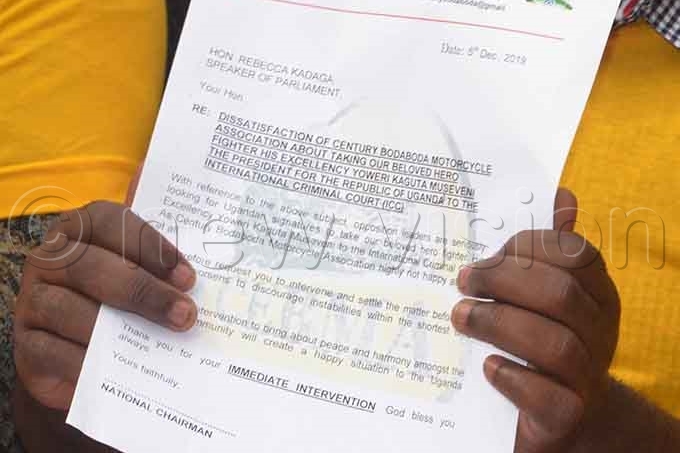 boda@gmail
Date: 5th Dec, 2019
HON. REBECCA KADAGA
SPEAKER OF PARLIAMENT
Your Hon
RE: DISSATISFACTION OF CENTURY BODABODA MOTORCYCLE
ASSOCIATION ABOUT TAKING OUR BELOVED HERO
FIGHTER HIS EXCELLENCY YOWERI KAGUTA MUSEVENI
THE PRESIDENT FOR THE REPUBLIC OF UGANDA TO THE
INTERNATIONAL CRIMINAL COURT (ICC)
With reference to the above subject opposition leaders are seriously
looking for Ugandan signatures to take our beloved hero fighter
Excellency Yoweri Kaguta Museveni to the International Criminal
As Century Bodaboda Motorcycle Association highly not happy
request you to intervene and settle the matter before
to discourage instabilities within the shortest
intervention to bring about peace and harmony amongst the
community will create a happy situation to the Uganda
always.
Thank you for your IMMEDIATE INTERVENTION God bless you
Yours faithfully,
NATIONAL CHAIRMAN
© new vision